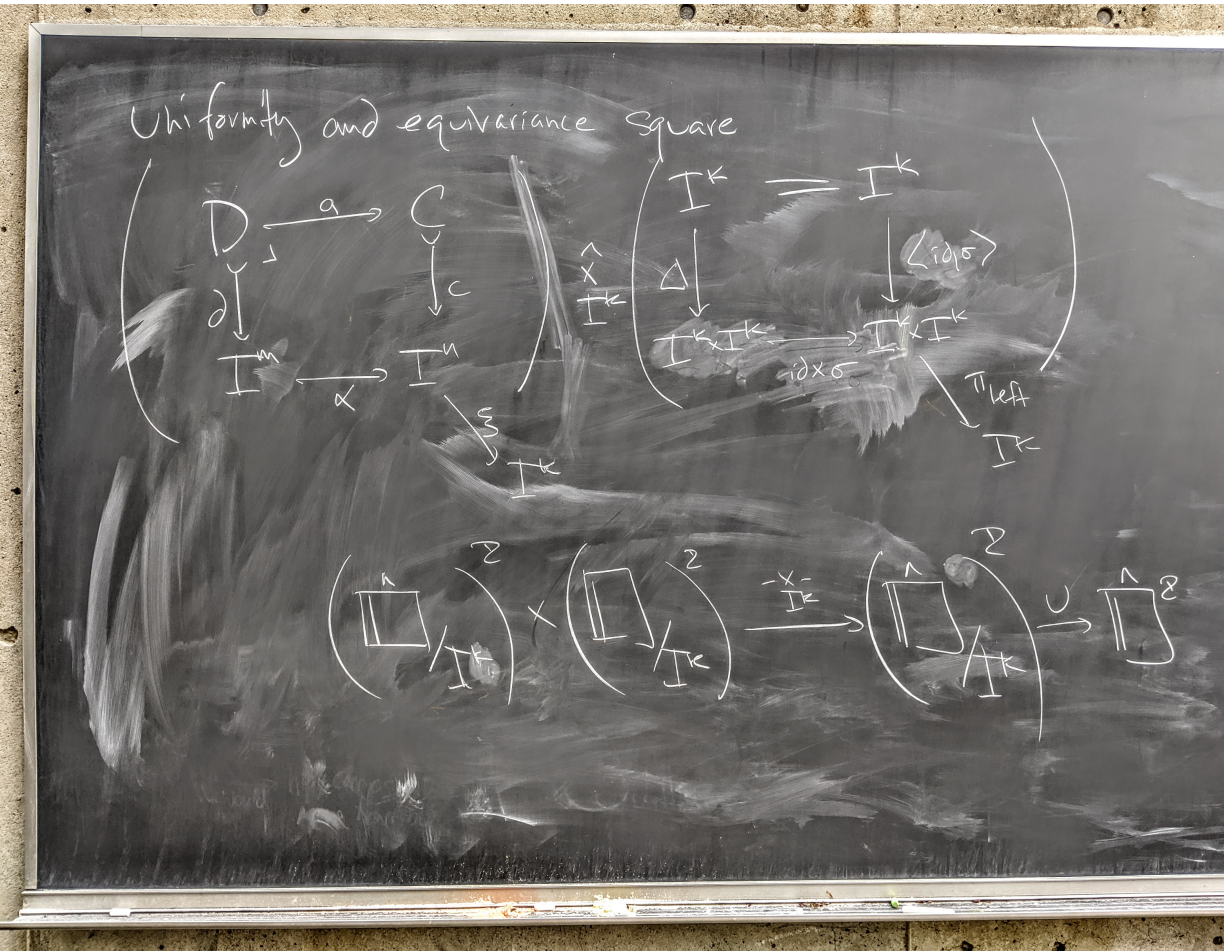 Uniformity and equivariance square
D a C I^k = I^k
∂ ⌟ c ×̂ I^k Δ ⟨id,σ⟩
I^m α I^n I^k×I^k id×σ I^k×I^k
ξ π left
I^k I^k
(□̂/I^k)^2 × (□̂/I^k)^2 -×- I^k → (□̂/I^k)^2 U → □̂^2